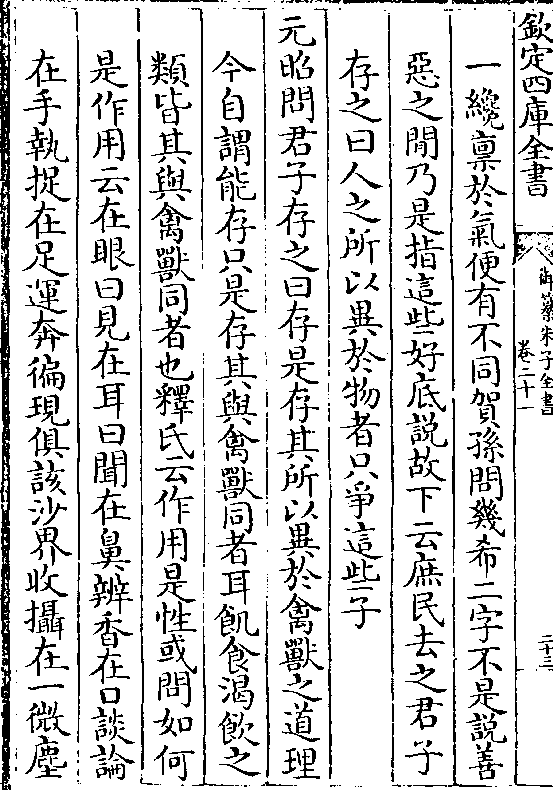 欽定四庫全書
御纂朱子全書
卷二十一
二十三
一纔稟於氣便有不同賀孫問幾希二字不是説善
惡之閒乃是指這些好底説故下云庶民去之君子
存之曰人之所以異於物者只爭這些子
元昭問君子存之曰存是存其所以異於禽獸之道理
今自謂能存只是存其與禽獸同者耳飢食渴飲之
類皆其與禽獸同者也釋氏云作用是性或問如何
是作用云在眼曰見在耳曰聞在鼻辨香在口談論
在手執捉在足運奔徧現俱該沙界收攝在一微塵